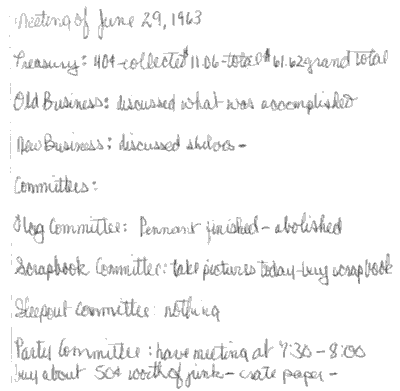 Meeting of June 29, 1963
Treasury: 40¢ collected $11.06 - total $61.62 grand total
Old Business: discussed what was accomplished
New Business: discussed -
Committees:
Flag Committee: Pennant finished - abolished
Scrapbook Committee: take pictures today - buy scrapbook
Sleepout committee: nothing
Party Committee: have meeting at 7:30 - 8:00
buy about 50¢ worth of junk - crate paper -